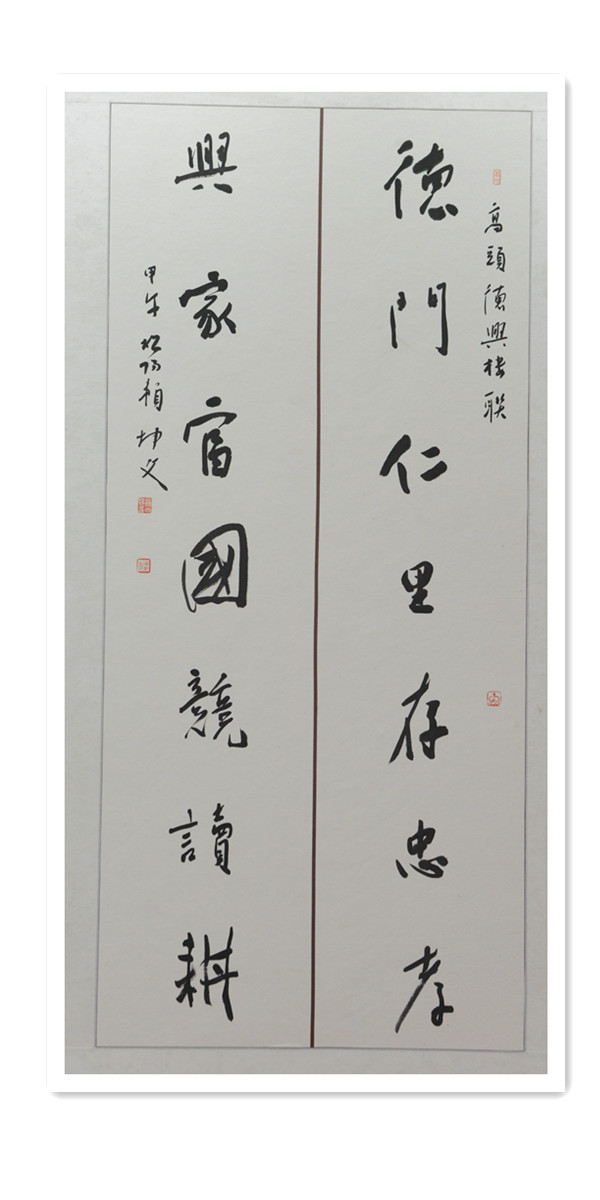 高頭德興楼联
德門仁里存忠孝
興家富國競讀耕
甲午 松阳賴坤文